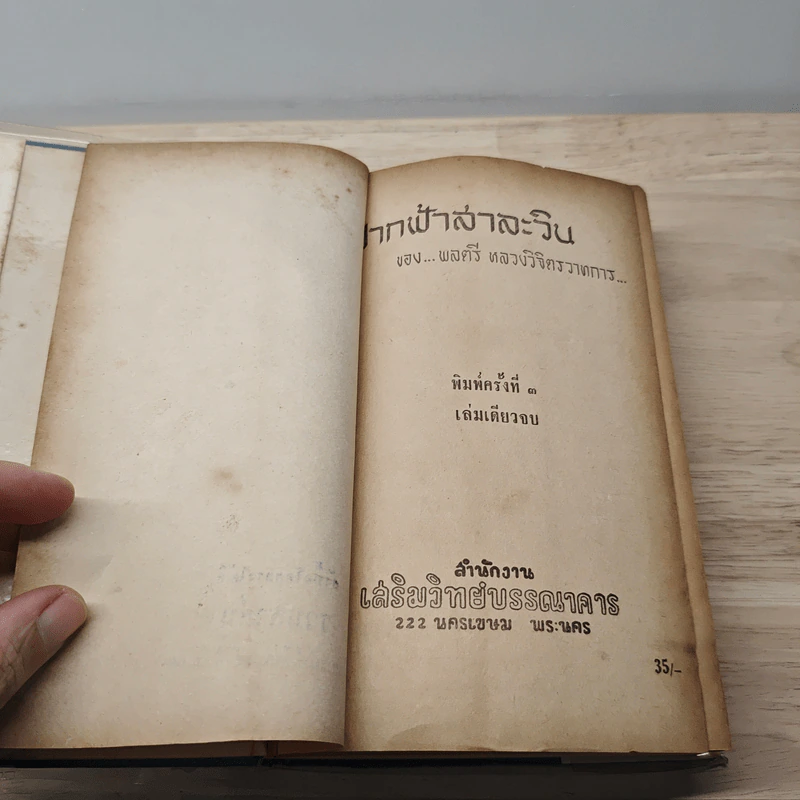 ฟากฟ้าสาละวิน
ของ... พลตรี หลวงวิจิตรวาทการ...
พิมพ์ครั้งที่ ๓
เล่มเดียวจบ
สำนักงาน
เสริมวิทย์บรรณาคาร
222 นครเขษม พระนคร
35/-